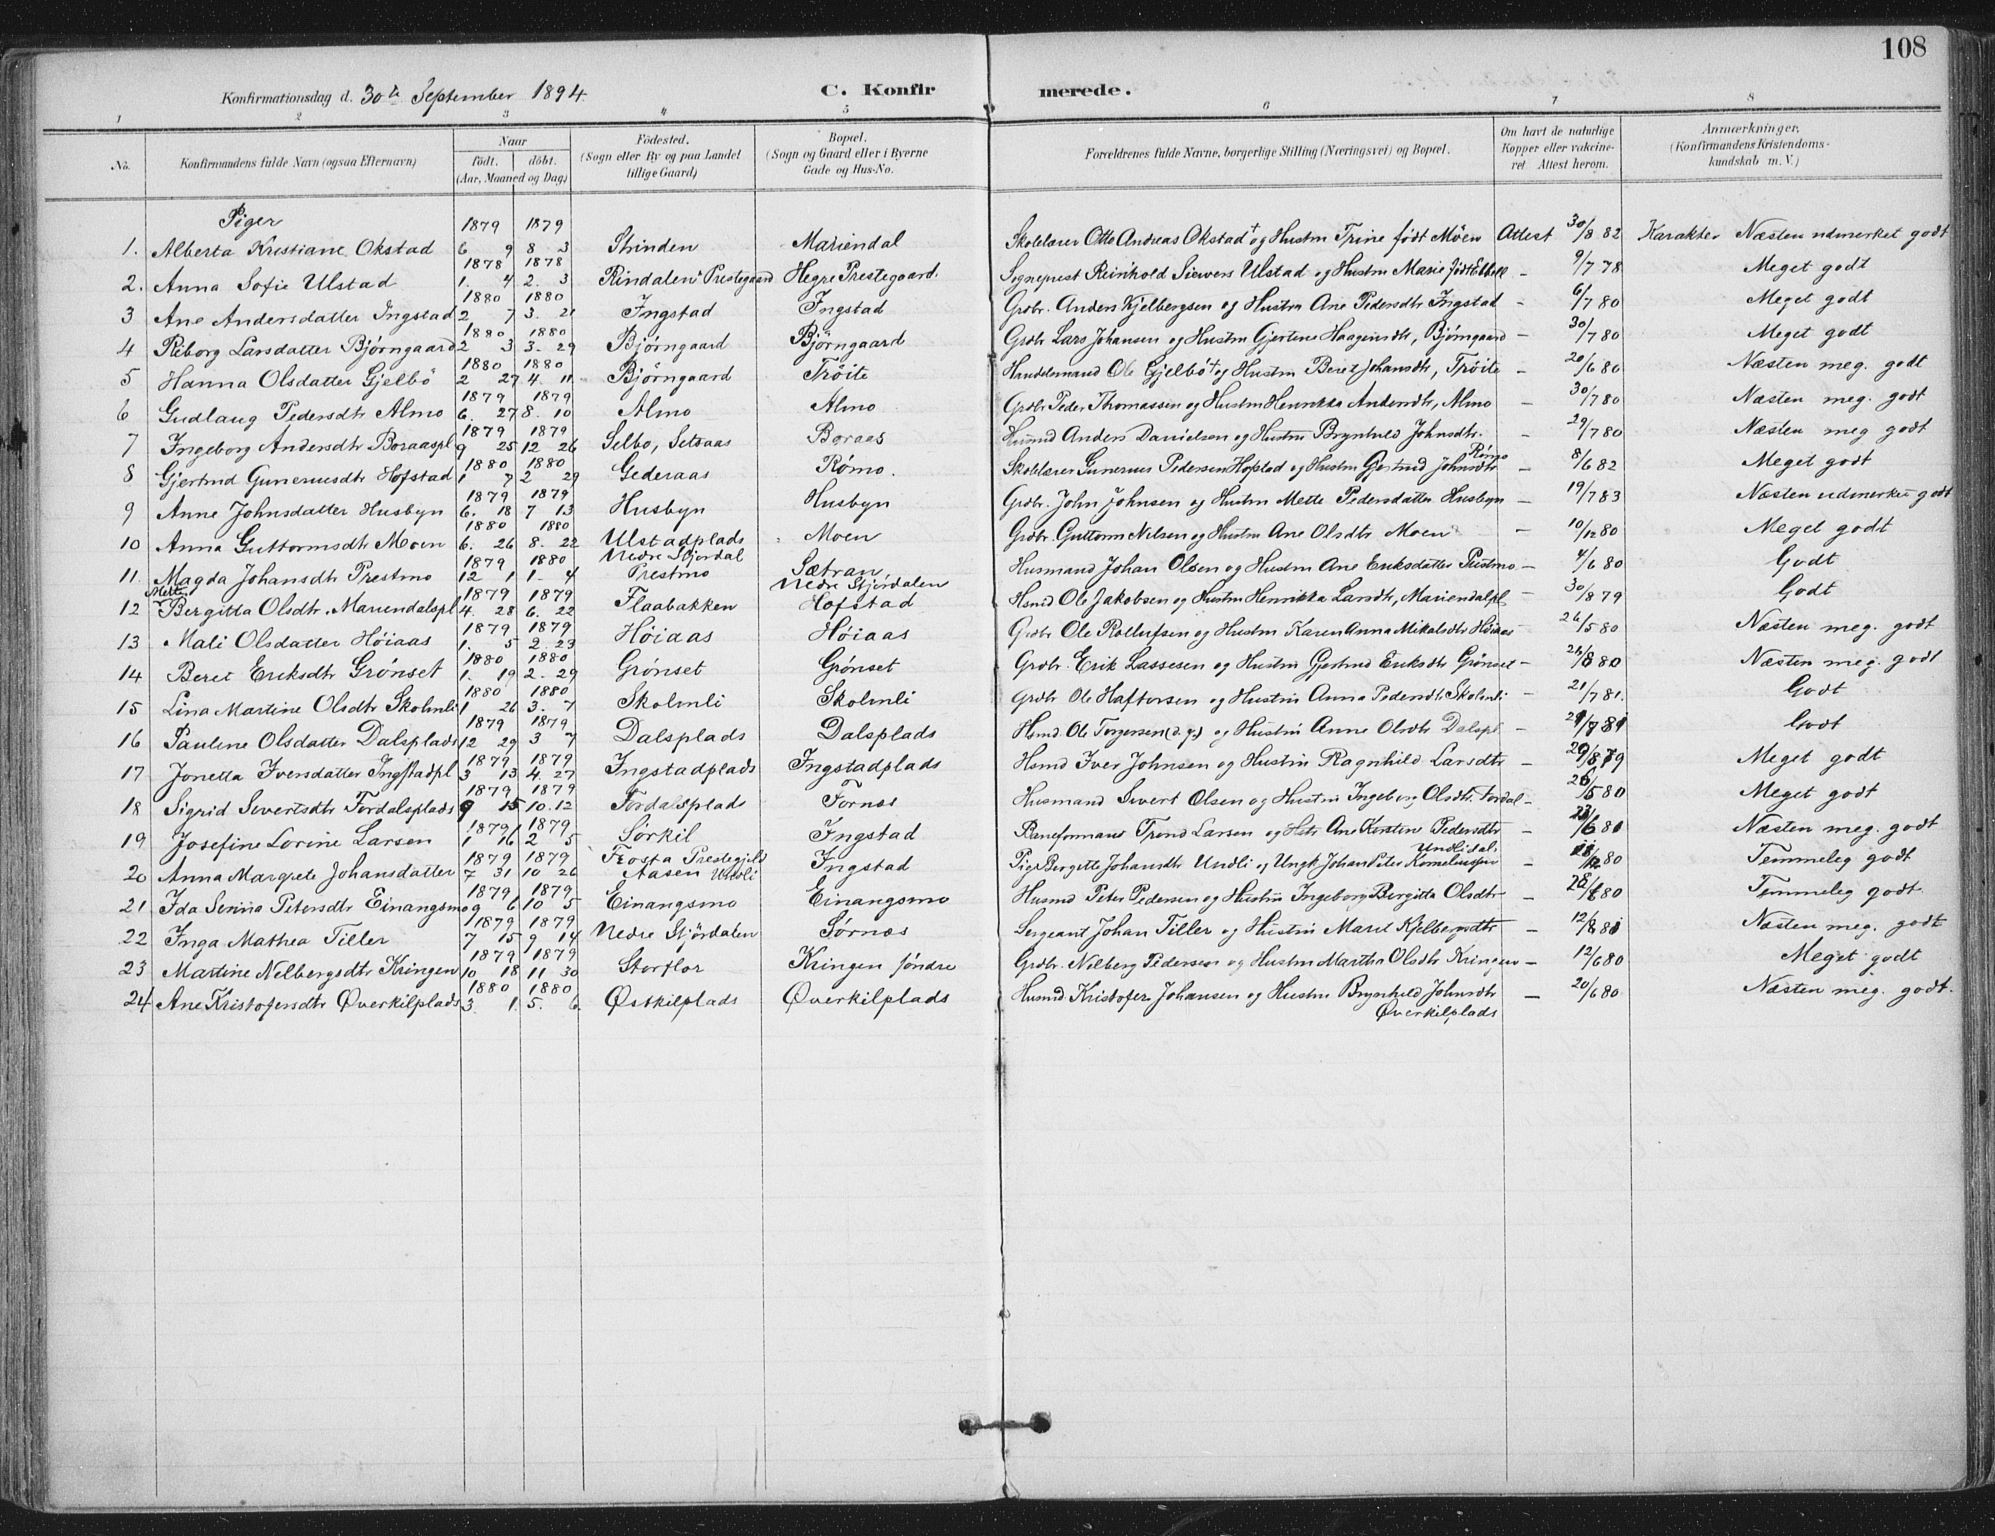 108
Konfirmationsdag d. 30te September 1894. C. Konfirmerede.
1 2 3 4 5 6 7 8
No. Konfirmandens fulde Navn (ogsaa Efternavn) Naar födt. döbt. (Aar, Maaned og Dag) Födested. (Sogn eller By og paa Landet tillige Gaard) Bopæl. (Sogn og Gaard eller i Byerne Gade og Hus-No. Forældrenes fulde Navne, borgerlige Stilling (Næringsvei) og Bopæl. Om havt de naturlige Kopper eller vakcineret Attest herom. Anmærkninger. (Konfirmandens Kristendomskundskab m. V.)
Piger
1. Alberta Kristiane Okstad 1879 6. 9 1879 8. 3 Strinden Mariendal Skolelærer Otto Andreas Okstad + og Hustru Trine født Möen Attest 30/8 82 Karakter Næsten udmerket godt
2. Anna Sofie Ulstad 1878 1. 4 1878 2. 3 Rindalen Prestegaard Hegre Prestegaard. Sogneprest Reinhold Siewers Ulstad og Hustru Marie født - 9/7 78 Meget godt
3 Ane Andersdatter Ingstad 1880 2 7 1880 3. 21 Ingstad Ingstad Grdbr. Anders Kjelbergsen og Hustru Ane Pedersdtr Ingstad - 6/7 80 Meget godt
4 Larsdatter Bjørngaard 1880 2 3 1880 3. 29 Bjørngaard Bjørngaard Grdbr Lars Johansen og Hustru Gjertine Haagensdtr, Bjørngaard - 30/7 80 Meget godt
5 Hanna Olsdatter Gjelbö 1880 2 27 1880 4. 11 Bjørngaard Tröite Ole Gjelbö + og Hustru Beret Johansdtr, Tröite - 20/6 80 Næsten meg. godt
6 Gudlaug Pedersdtr Almo 1879 6. 27 1879 8. 10 Almo Almo Grdbr Peder Thomassen og Hustru Henrikka Andersdtr, Almo - 30/7 80 Næsten meg. godt
7 Ingeborg Andersdtr Boraaspl 1879 9 25 1879 12 26 Selbo, Setsaas Boraas Husmd Anders Danielsen og Hustru Brynhild Johnsdtr. - 29/7 80 Næsten meg godt
8 Gjertrud Gunneriusdtr Hofstad 1880 1 7 1880 2 29 Gederaas Rømo. Skolelærer Gunerius Pedersen Hofstad og Hustru Gjertrud Johnsdtr Rømo - 8/6 82 Meget godt
9 Anne Johnsdatter Husbyn 1879 6. 18 1879 7 13 Husbyn Husbyn Grdbr. John Johnsen og Hustru Mette Pedersdatter Husbyn - 19/7 83 Næsten udmerket godt
10 Anna Guttormsdtr Moen 1880 6. 26 1880 8. 22 Ulstadplads Moen Grdbr. Guttorm Nilsen og Hustru Ane Olsdtr Moen - 10/12 80 Meget godt
11. Magda Johansdtr Prestmo 1879 12 1 1880 1. 4 Nedre Stjørdal Prestmo Sætran, Nedre Stjørdalen Husmand Johan Olsen og Hustru Ane Eriksdatter Prestmo - 4/6 80 Godt
12 Bergitta Olsdtr. Mariendalspl 1879 4. 28 1879 6. 22 Flaabakken Hofstad Hsmd Ole Jakobsen og Hustru Henrikka Larsdtr, Mariendalpl - 30/8 79 Godt
13 Mali Olsdatter Höiaas 1879 1. 5 1879 2. 23 Höiaas Höiaas Grdbr Ole Rollufsen og Hustru Karen Anna Mikalsdtr Höiaas 26/5 80 Næsten meg. godt
14 Beret Eriksdtr Grönset 1880 1. 19 1880 2. 29 Grönset Grönset Grdbr. Erik Lassesen og Hustru Gjertrud Eriksdtr Grönset - 26/8 80 Næsten meg. godt
15 Lina Martine Olsdtr Skolmli 1880 1 26 1880 3. 7 Skolmli Skolmli Grdbr Ole Haftorsen og Hustru Anna Pedersdtr Skolmli 21/7 81. Godt
16 Pauline Olsdatter Dalsplads 1879 12 29 1879 3 7 Dalsplads Dalsplads Hsmd. Ole Torgersen (d.y.) og Hustru Anne Olsdtr Dalspl. - Godt
17 Jonetta Iversdatter Ingstadpl 1879 3 13 1879 4. 27 Ingstadplads Ingstadplads Hsmd Iver Johnsen og Hustru Ragnhild Larsdtr - 29/8 79 Meget godt
18 Sigrid Sivertsdtr Fordalsplads 1879 9 15 1879 10. 12 Fordalsplads Fornes Husmand Sivert Olsen og Hustru Ingeborg Olsdtr. Fordal - 26/5 80 Meget godt
19 Josefine Lorine Larsen 1879 1 16 1879 2 5 Sörkil Ingstad Baneformand Trond Larsen og Hstr Ane Kirstine Pedersdtr - Næsten meg. godt
20 Anna Margrete Johansdatter 1879 7 31 1879 10 26 Frosta Prestegjeld Aasen Undli Ingstad Pige Bergitte Johansdtr Undli og Ungk Johan Peter Korneliussen - Temmeleg godt
21 Ida Serina Petersdtr Einangsmo 1879 9 6 1879 10 5 Einangsmo Einangsmo Husmd Peter Pedersen og Hustru Ingeborg Bergitta Olsdtr - 28/6 80 Temmeleg godt
22 Inga Mathea Tiller 1879 7 15 1879 9 14 Nedre Stjördalen Sörnæs Sergeant Johan Tiller og Hustru Maret Kjelbergsdtr - 12/8 81 Næsten meg. godt
23 Martine Nilbergsdtr Kringen 1879 10 18 1879 11 30 Storflor Kringen søndre Grdbr. Nilberg Pedersen og Hustru Martha Olsdtr Kringen - 12/6 80 Meget godt
24 Ane Kristofersdtr Øverkilplads 1880 3. 1. 1880 5. 6. Østkilplads Øverkilplads Husmd Kristofer Johansen og Hustru Brynhild Johnsdtr Øverkilplads - 20/6 80 Næsten meg. godt.